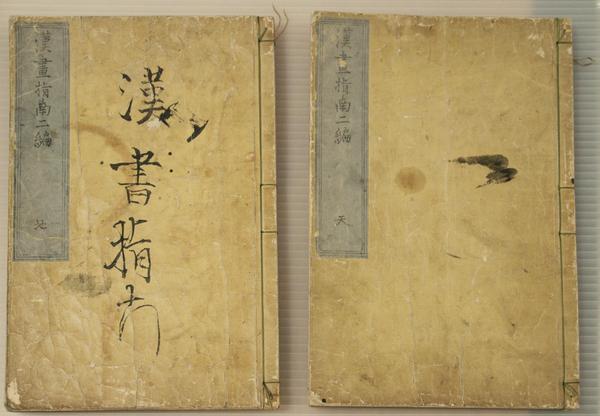 漢畫指南二編
天
漢書指南
漢畫指南二編
地